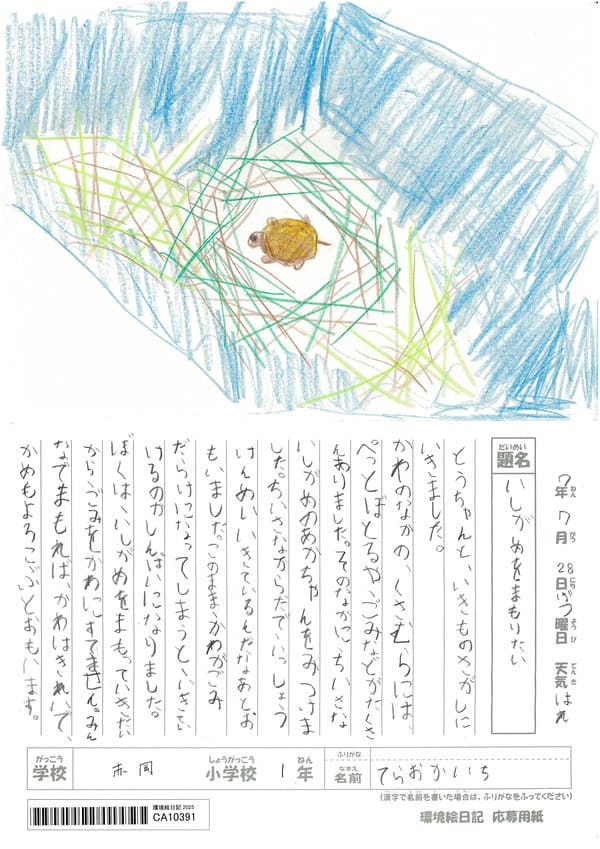 7年 7月 28日 げつ曜日 天気 はれ
ねん がつ にち ようび てんき
だいめい
題名
いしがめをまもりたい
とうちゃんと、いきものさがしに
いきました。
かわのなかの、くさむらには、
ぺっとぼとるや、ごみなどがたくさ
んありました。そのなかに、ちいさな
いしがめのあかちゃんをみつけま
した。ちいさなからだで、いっしょう
けんめい、いきているんだなあとお
もいました。このまま、かわがごみ
だらけになってしまうと、いきてい
けるのかしんぱいになりました。
ぼくは、いしがめをまもっていきたい
から、ごみをかわにすてません。みん
なでまもれば、かわはきれいで、
かめもよろこぶとおもいます。
がっこう しょうがっこう ねん ふりがな
学校 小学校 1年 なまえ 名前 てらおかいち
(漢字で名前を書いた場合は、ふりがなをふってください)
環境絵日記 応募用紙
環境絵日記 2025
CA10391